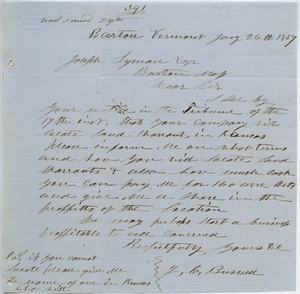 391
Barton Vermont Jany 26th 1857
Joseph Lyman Esqr
Boston Mass
Dear Sir
I See by
your in the Tribune of the
17th inst. that your company will
locate Land Warrants in Kansas
please inform me on what terms
and how you will locate Land
Warrants & also how much cash
you can pay me for 160 acre
and give me a Share in the
profits of the location
We may perhaps start a business
profitable to all concerned
Respectfully Yours &c
P.S. if you cannot
locate please give me
the name of one in Kansas
who will